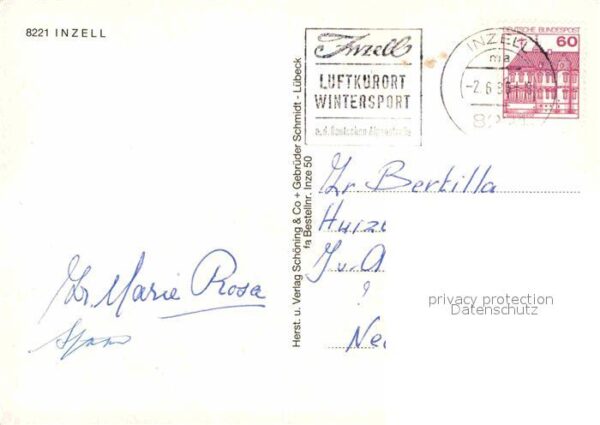 8221 INZELL
Inzell
LUFTKURORT
WINTERSPORT
a.d. Deutschen Alpenstraße
INZELL
ma
-2.6.8
DEUTSCHE BUNDESPOST
60
Herst. u. Verlag Schöning & Co + Gebrüder Schmidt - Lübeck
fa Bestellnr. Inze 50
Zr Bertilla
Huiz
J.v.A
?
Ne
Zr. Marie Rosa
privacy protection
Datenschutz